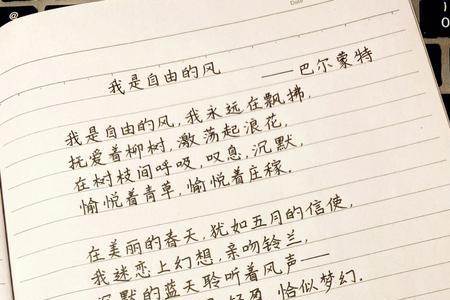 Date
我是自由的风 ——巴尔蒙特
我是自由的风,我永远在飘拂,
抚爱着柳树,激荡起浪花,
在树枝间呼吸,叹息,沉默,
愉悦着青草,愉悦着庄稼.
在美丽的春天,犹如五月的信使,
我迷恋上幻想,亲吻铃兰,
沉默的蓝天聆听着风声——
恰似梦幻.